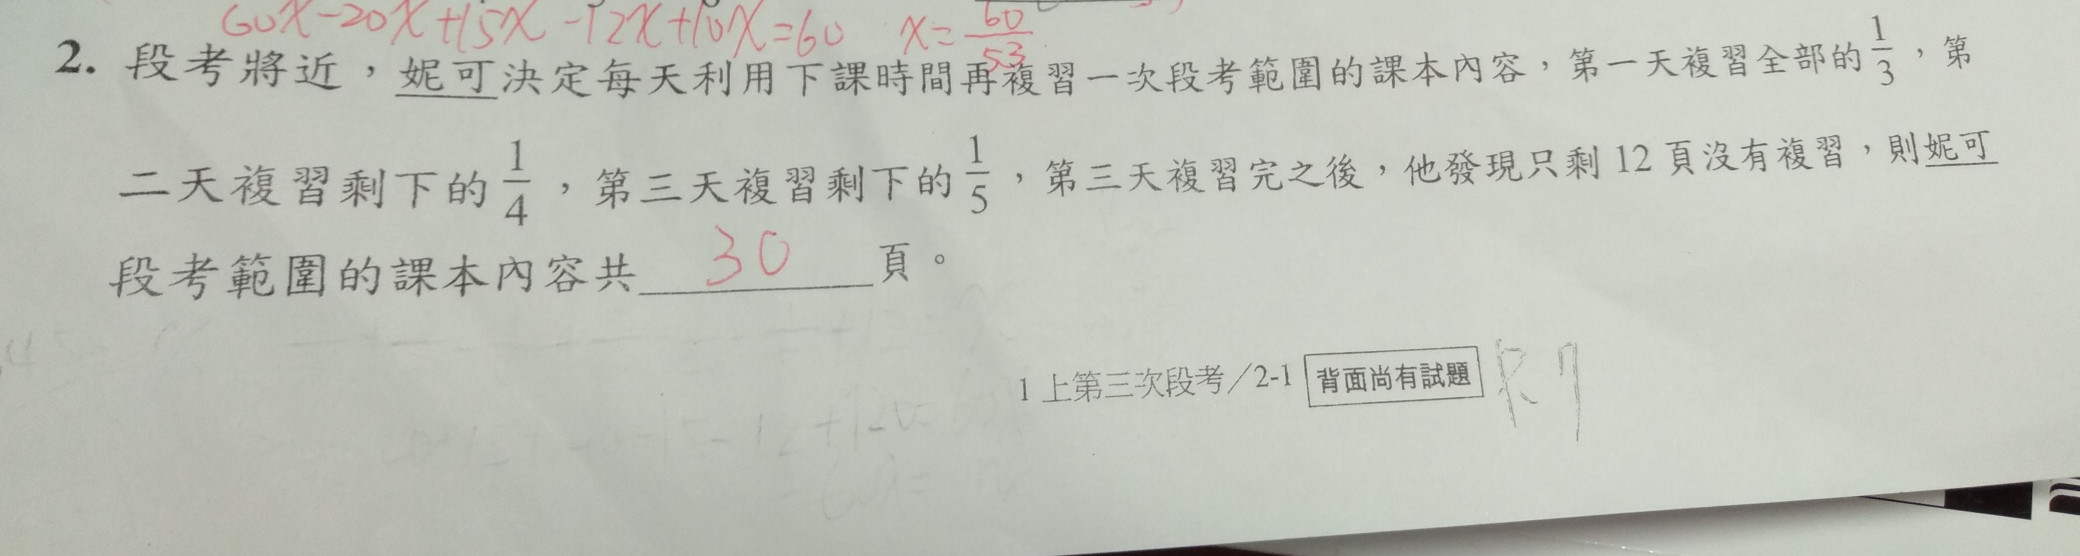 60x-20x+15x-12x+10x=60 x=60/53
2. 段考將近，妮可決定每天利用下課時間再複習一次段考範圍的課本內容，第一天複習全部的 1/3，第
二天複習剩下的 1/4，第三天複習剩下的 1/5，第三天複習完之後，他發現只剩 12 頁沒有複習，則妮可
段考範圍的課本內容共 30 頁。
1 上第三次段考／2-1 背面尚有試題